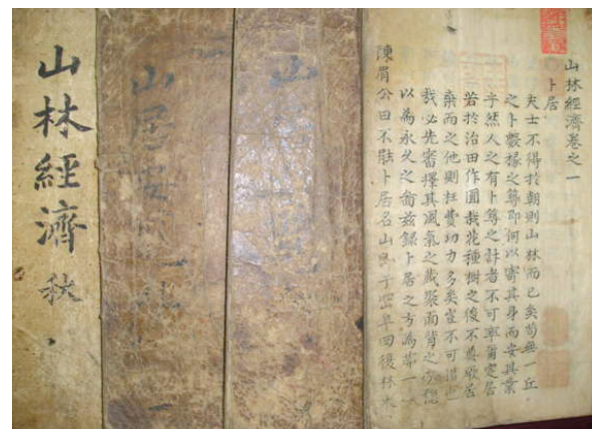 山林經濟卷之一
卜居
夫士不得於朝則山林而已矣苟無一丘
之卜數椽之築即何以寄其身而安其業
乎然人之有卜築之計者不可率爾定居
若於治田作圃栽花種樹之後不厥居
棄而之他則枉費功力多矣豈不可惜
我必先審擇其風氣之藏聚面背之安穩
以為永久之啚茲錄卜居之方為第一
陳眉公曰不能卜居名山即于岡阜回複林水
山
山居
山林經濟 秋